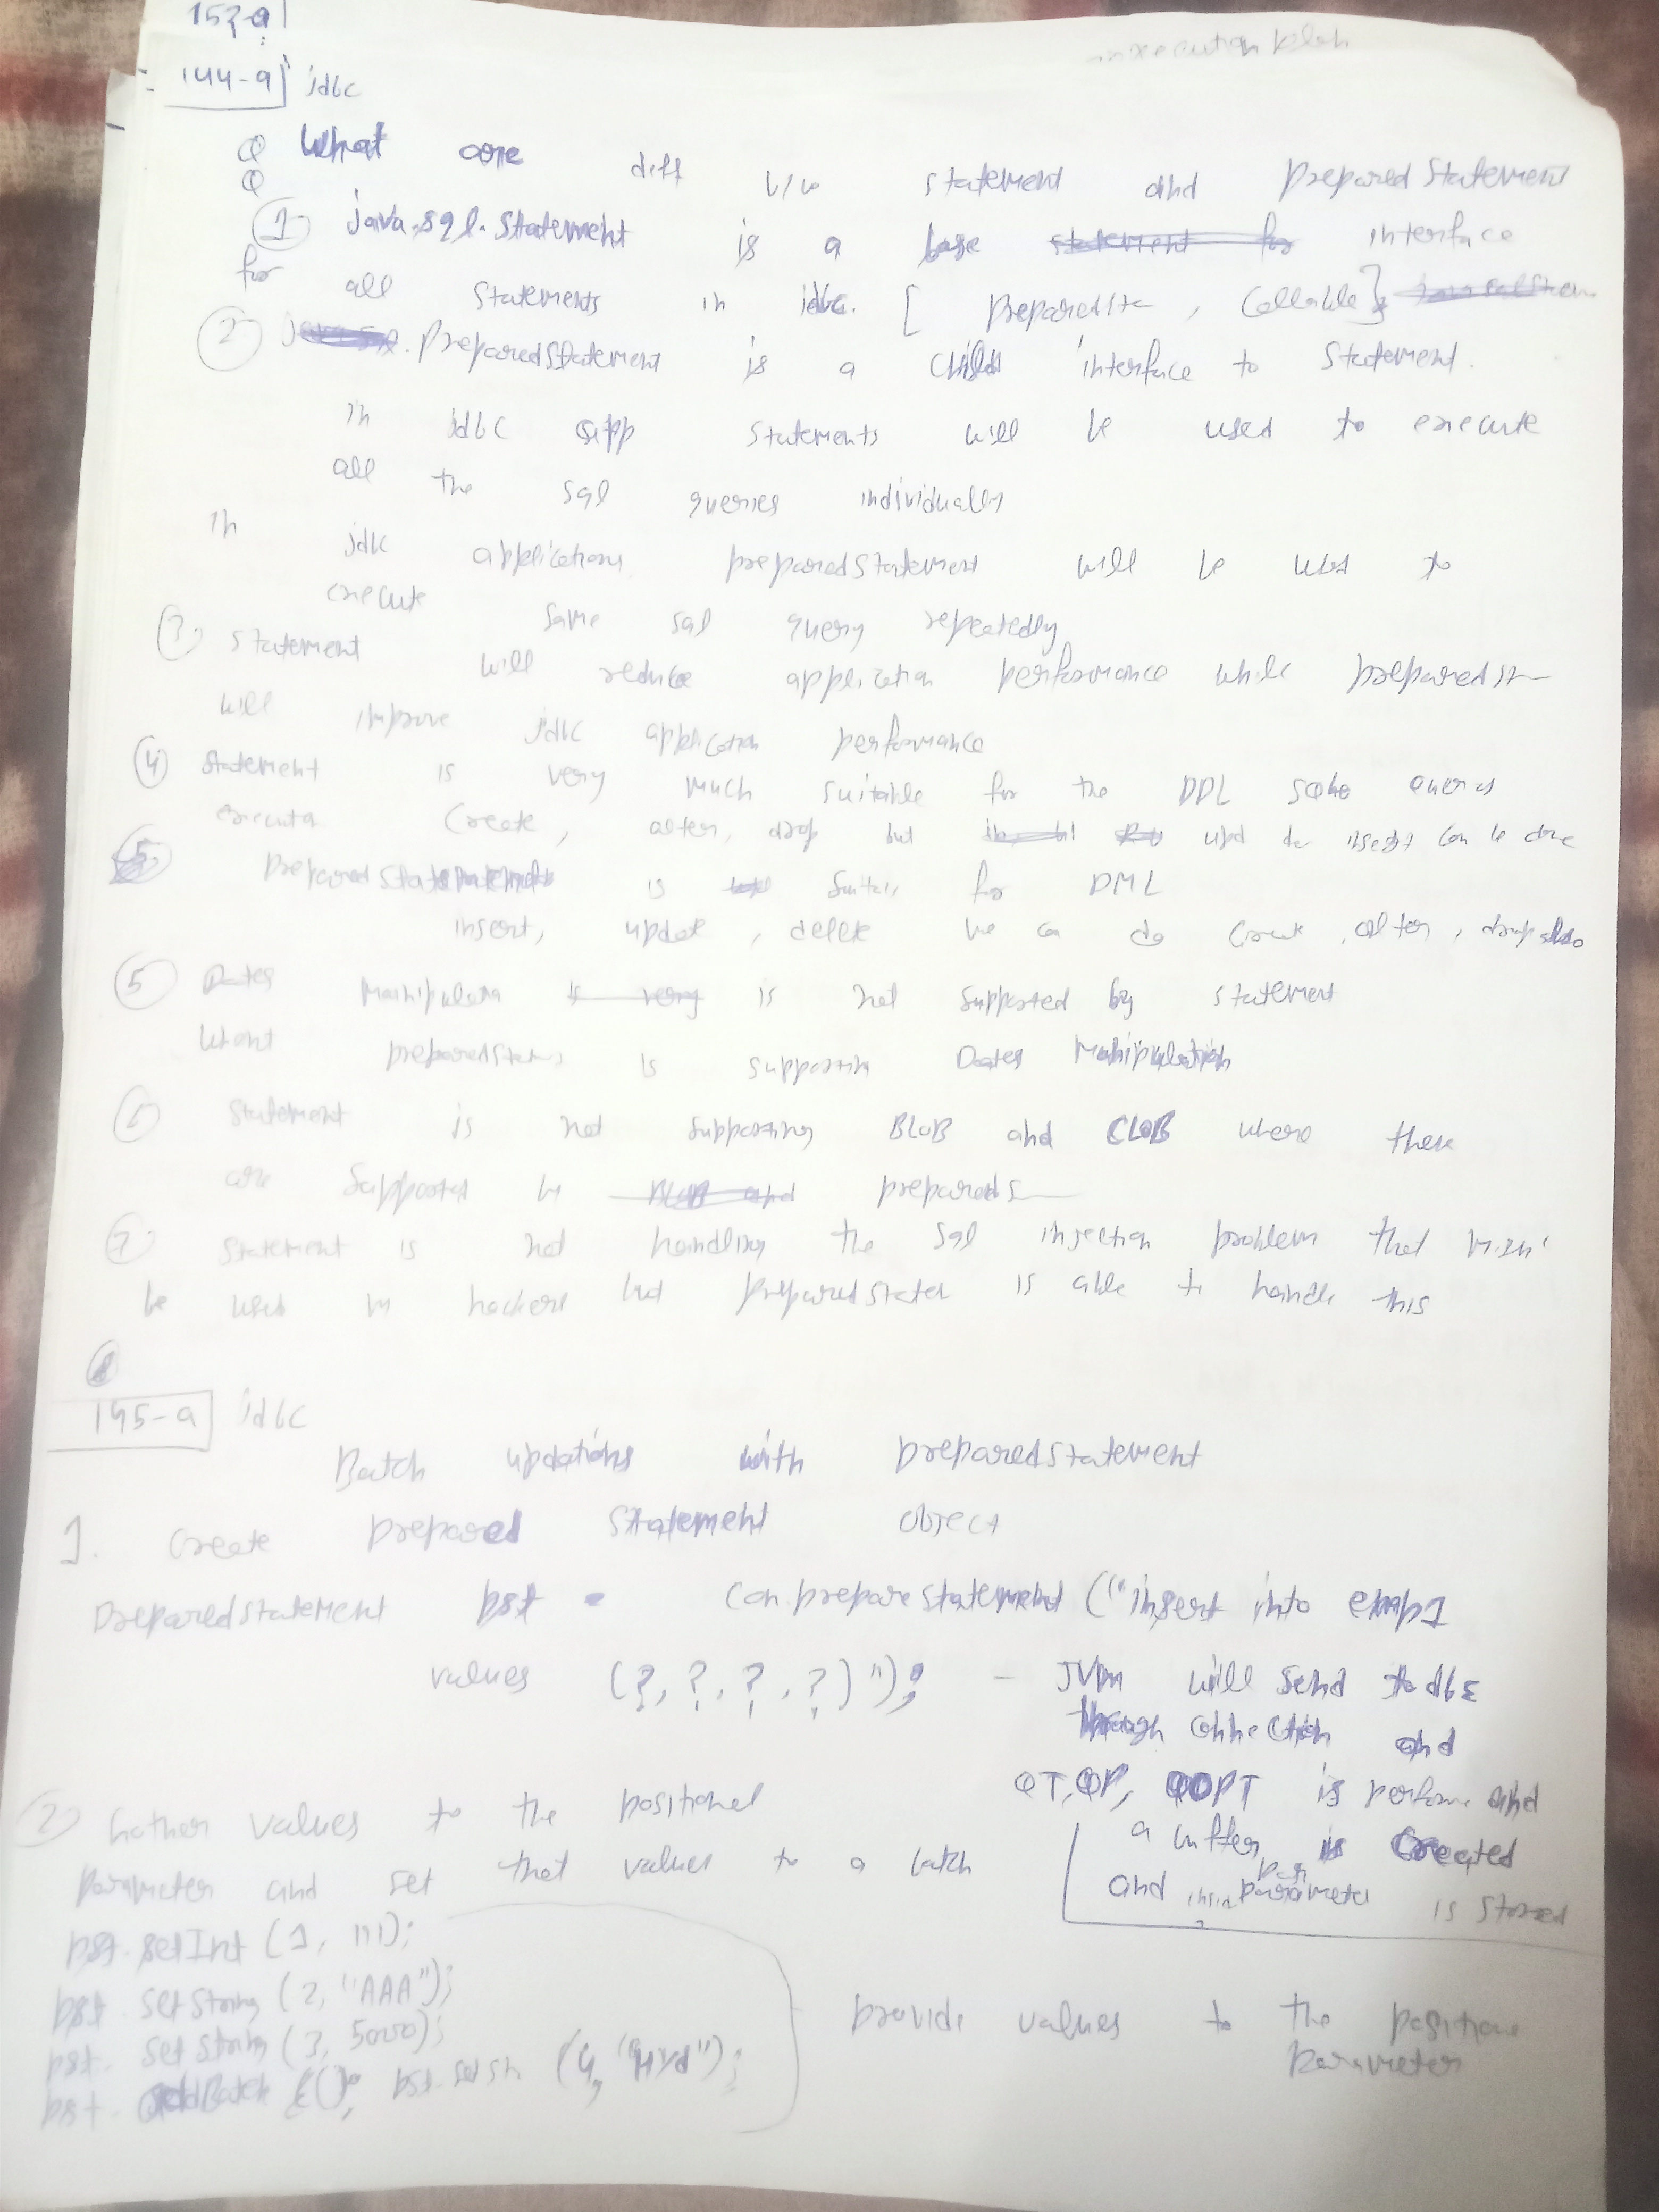 152-a
execution plan
144-a jdbc
Q What are diff b/w statement and preparedStatement
Q
① java.sql.Statement is a base interface
for all statements in jdbc. [ preparedst , Callable ]
② PreparedStatement is a child interface to statement.
in jdbc app statements will be used to execute
all the sql queries individually
in jdbc applications preparedStatement will be used to
execute same sql query repeatedly
③ Statement will reduce application performance while preparedst
will improve jdbc application performance
④ Statement is very much suitable for the DDL queries
Create, alter, drop but insert can be done
PreparedStatement is for DML
insert, update, delete we can do create, alter, drop also
⑤ Dates is not supported by statement
preparedState is Dates Manipulation
⑥ Statement is not supporting BLOB and CLOB where these
are supported by prepareds
⑦ Statement is not handling the sql injection problem that
be used by hackers but is able to handle this
145-a jdbc
Batch updations with preparedstatement
1. Create prepared Statement object
Preparedstatement pst = con.prepareStatement ("insert into emp1
values (?, ?, ?, ?) "); - JVM will send to dbE
through connection and
QT, QP, QOPT is and
a buffer is created
and parameter is stored
② values to the positional
parameter and set that values to a batch
pst. setInt (1, 111);
pst. setString (2, "AAA");
pst. setString (3, 5000);
pst. addBatch (); pst. (4, "Hyd");
provide values to the
parameter